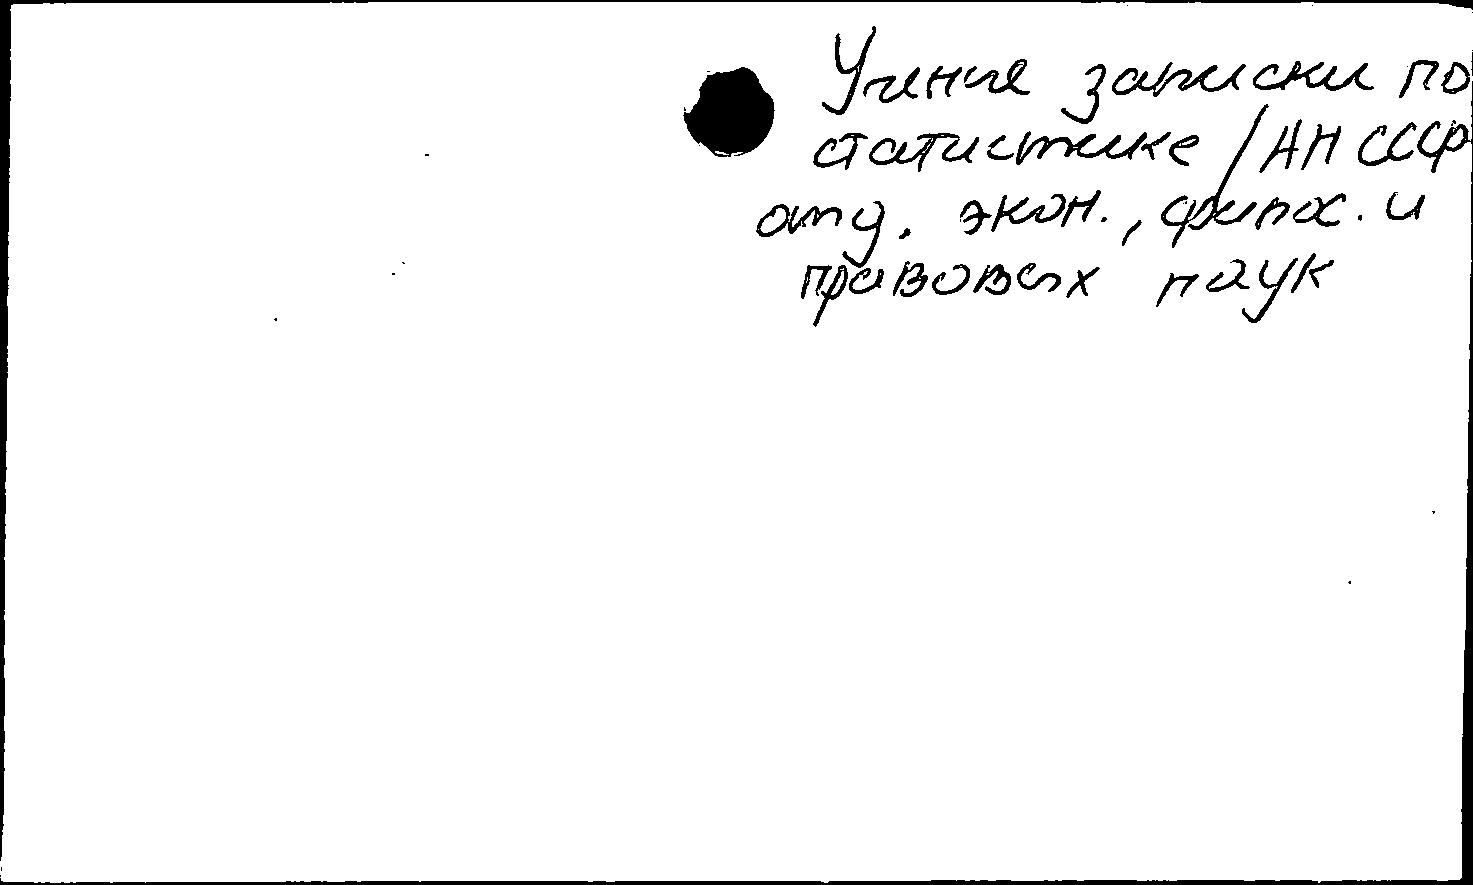 Ученые записки по
статистике / АН СССР
отд. экон., филос. и
правовых наук